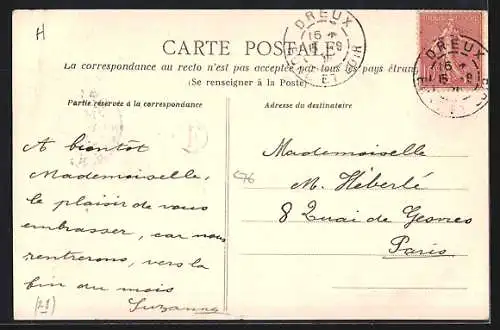 H
DREUX
CARTE POSTALE
La correspondance au recto n'est pas acceptée par tous les pays étrang
(Se renseigner à la Poste)
Partie réservée à la correspondance
A bientôt
Mademoiselle,
le plaisir de vous
embrasser, car nous
rentrerons, vers la
fin du mois
Suzanne
(28)
Adresse du destinataire
Mademoiselle
M. Héberlé
8 Quai de Gesvres
Paris
C76
DREUX